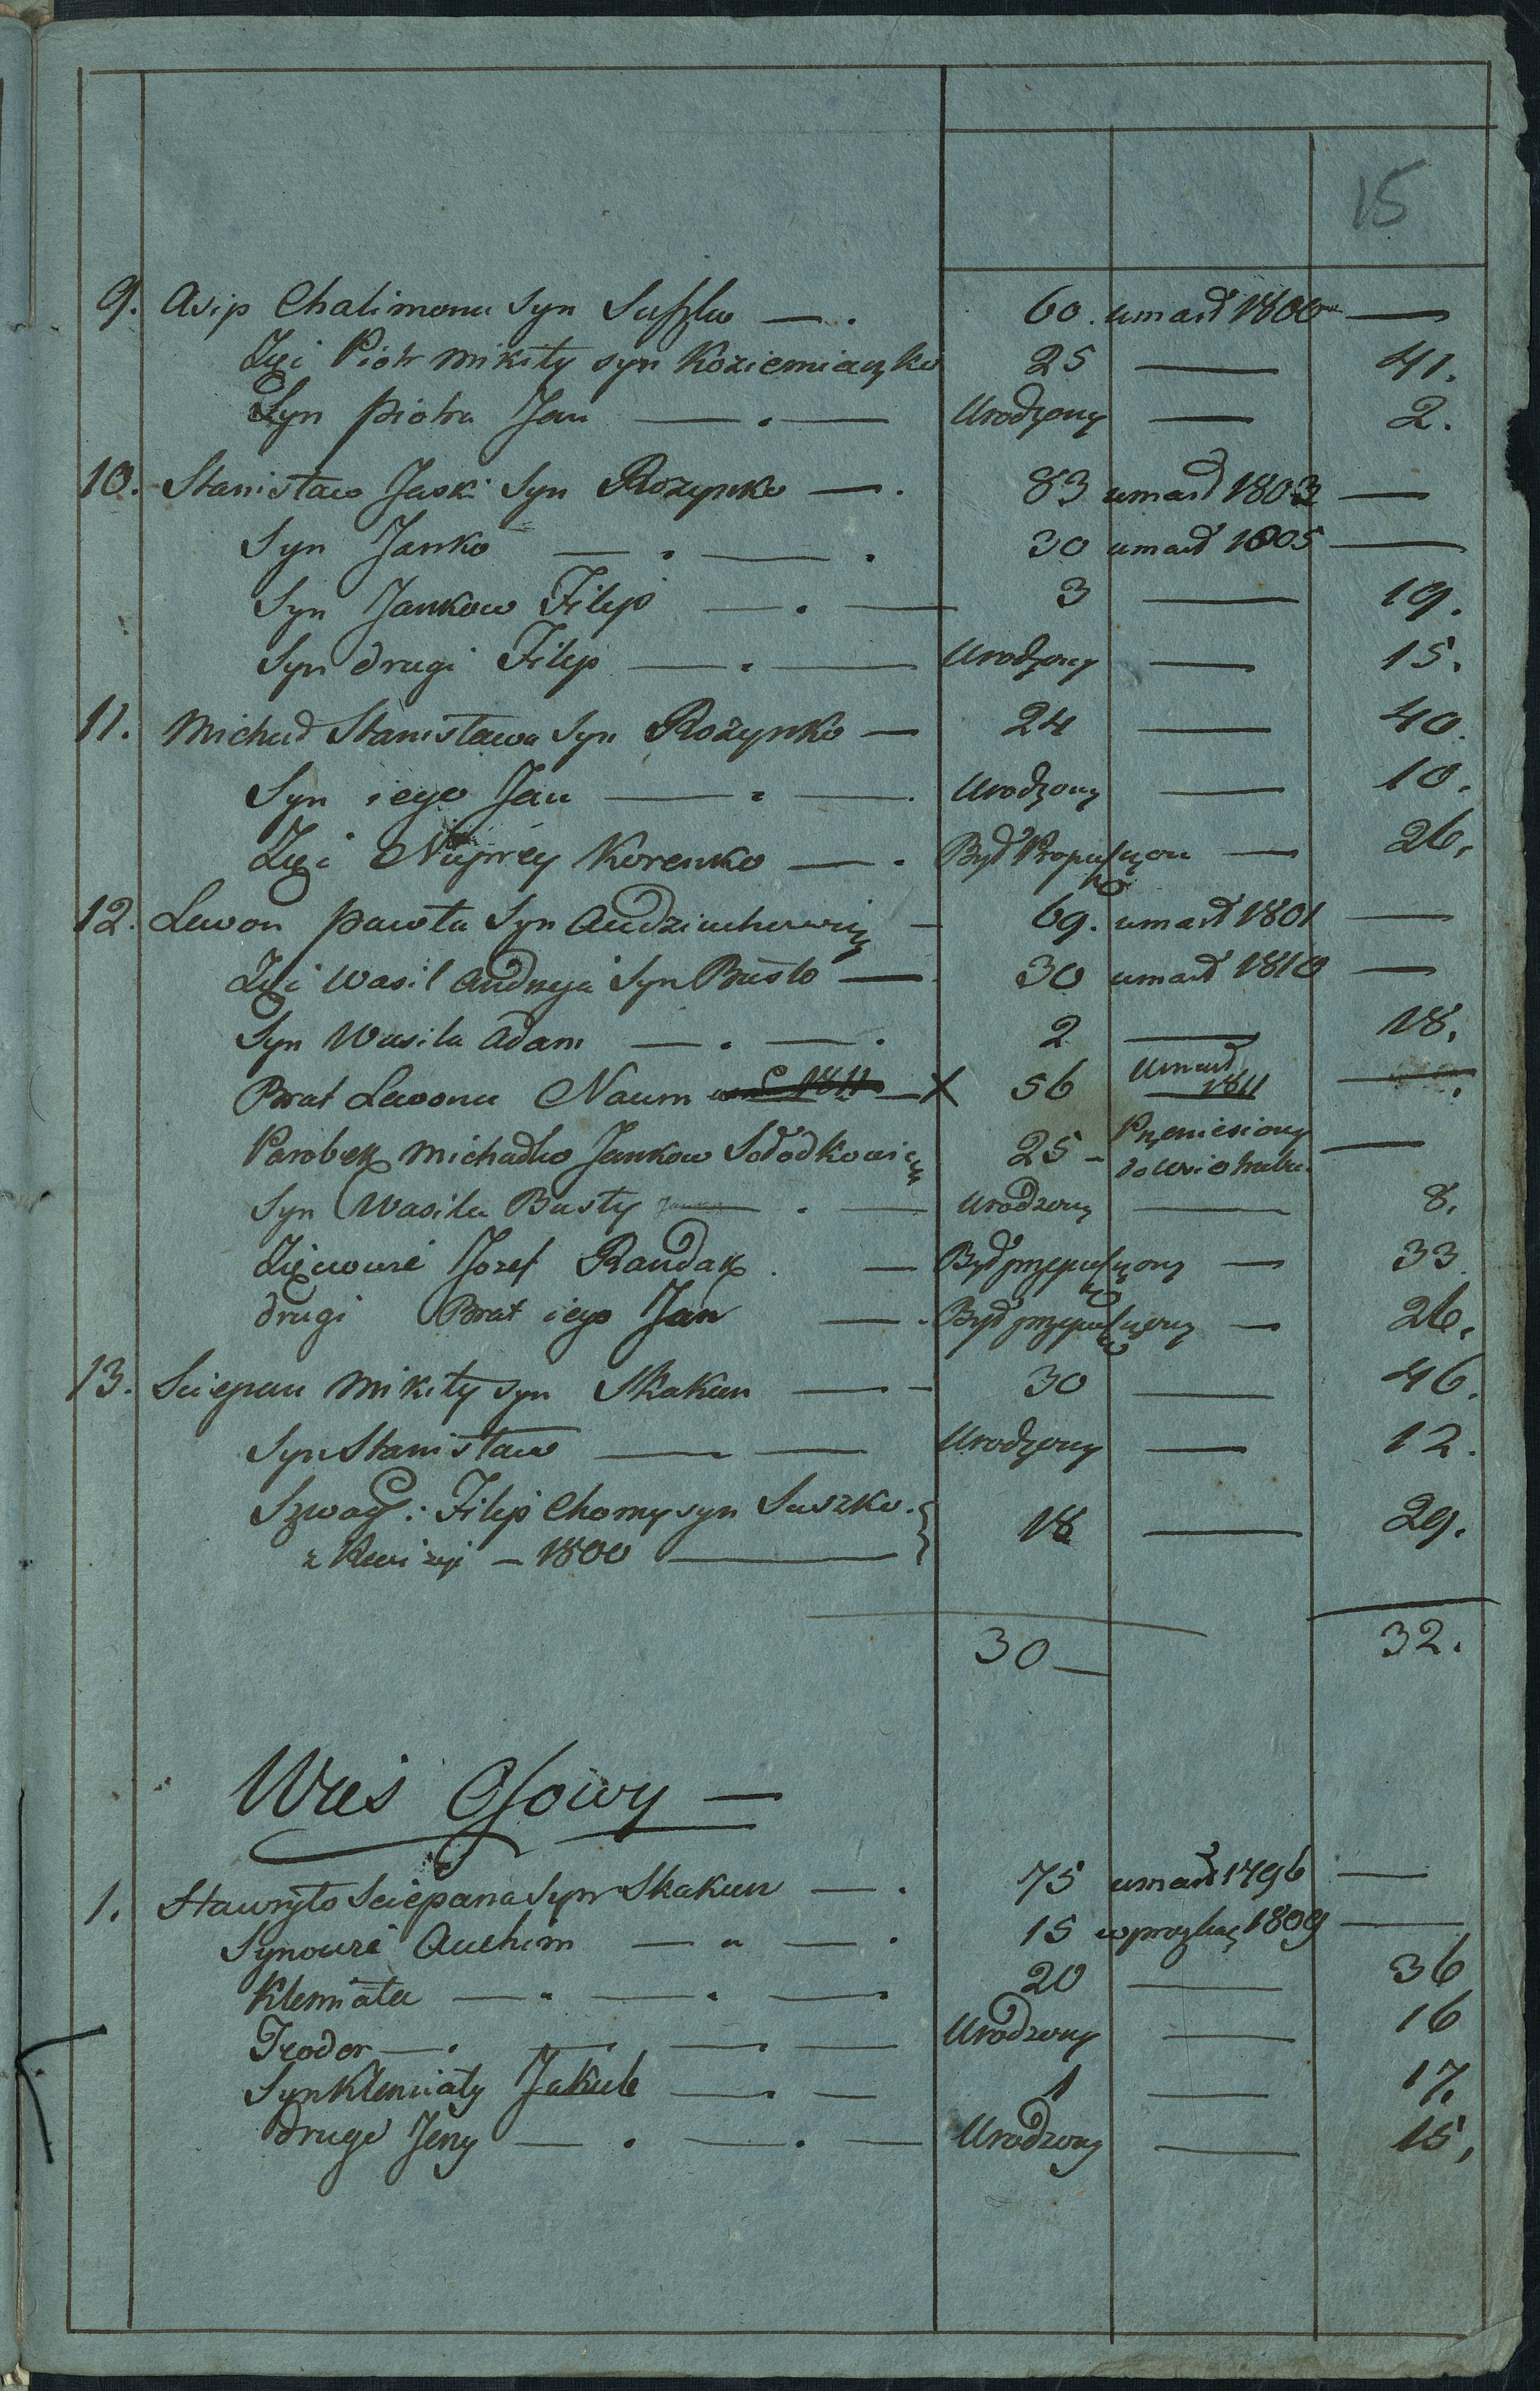 15
9. Asip Chalimona Syn Suszko — . 60. umarł 1800 —
Zięć Piotr Mikity syn Koziemiaczko 25 — 41.
Syn Piotra Jan — . — Urodzony — 2.
10. Stanisław Jaski Syn Rozynko — . 83 umarł 1803 —
Syn Janko — . — . 30 umarł 1805 —
Syn Jankow Filip — . — 3 — 19.
Syn drugi Filip — . — Urodzony — 15.
11. Michał Stanisława Syn Rożynko — 24 — 40.
Syn iego Jan — . — . Urodzony — 10.
Zięć Naprey Korenko — . Był Propuszczon — 26.
12. Lewon Pawła Syn Audziuchowicz — 69. umarł 1801 —
Zięć Wasil Andreja Syn Busło — 30 umarł 1810 —
Syn Wasila Adam — . — . 2 — 18.
Brat Lewona Naum 1811 — X 56 Umarł 1811 — .
Parobek Michałko Jankow Sołodkowicz 25 - Przeniesiony do Wsi —
Syn Wasila Busły — . — Urodzony — 8.
Zięciowie Jozef Raudak . — Był przepuszczony — 33
drugi Brat iego Jan — . Był przepuszczony — 26.
13. Sciepan Mikity syn Skakun — - 30 — 46.
Syn Stanisław — — Urodzony — 12.
Szwagr: Filip Chomy syn Suszko . } 18 — 29.
z Rewizyi – 1800 —
30 — 32.
Wieś Osowy —
1. Hawryło Sciepana Syn Skakun — . 75 umarł 1796 —
Synowie Auchim — „ — . 15 1809 —
Klemiata — . — . — 20 — 36
Teodor — . — . — . — Urodzony — 16
Syn Klemiaty Jakub — . — 1 — 17.
drugi Jeny — . — . — Urodzony — 15.